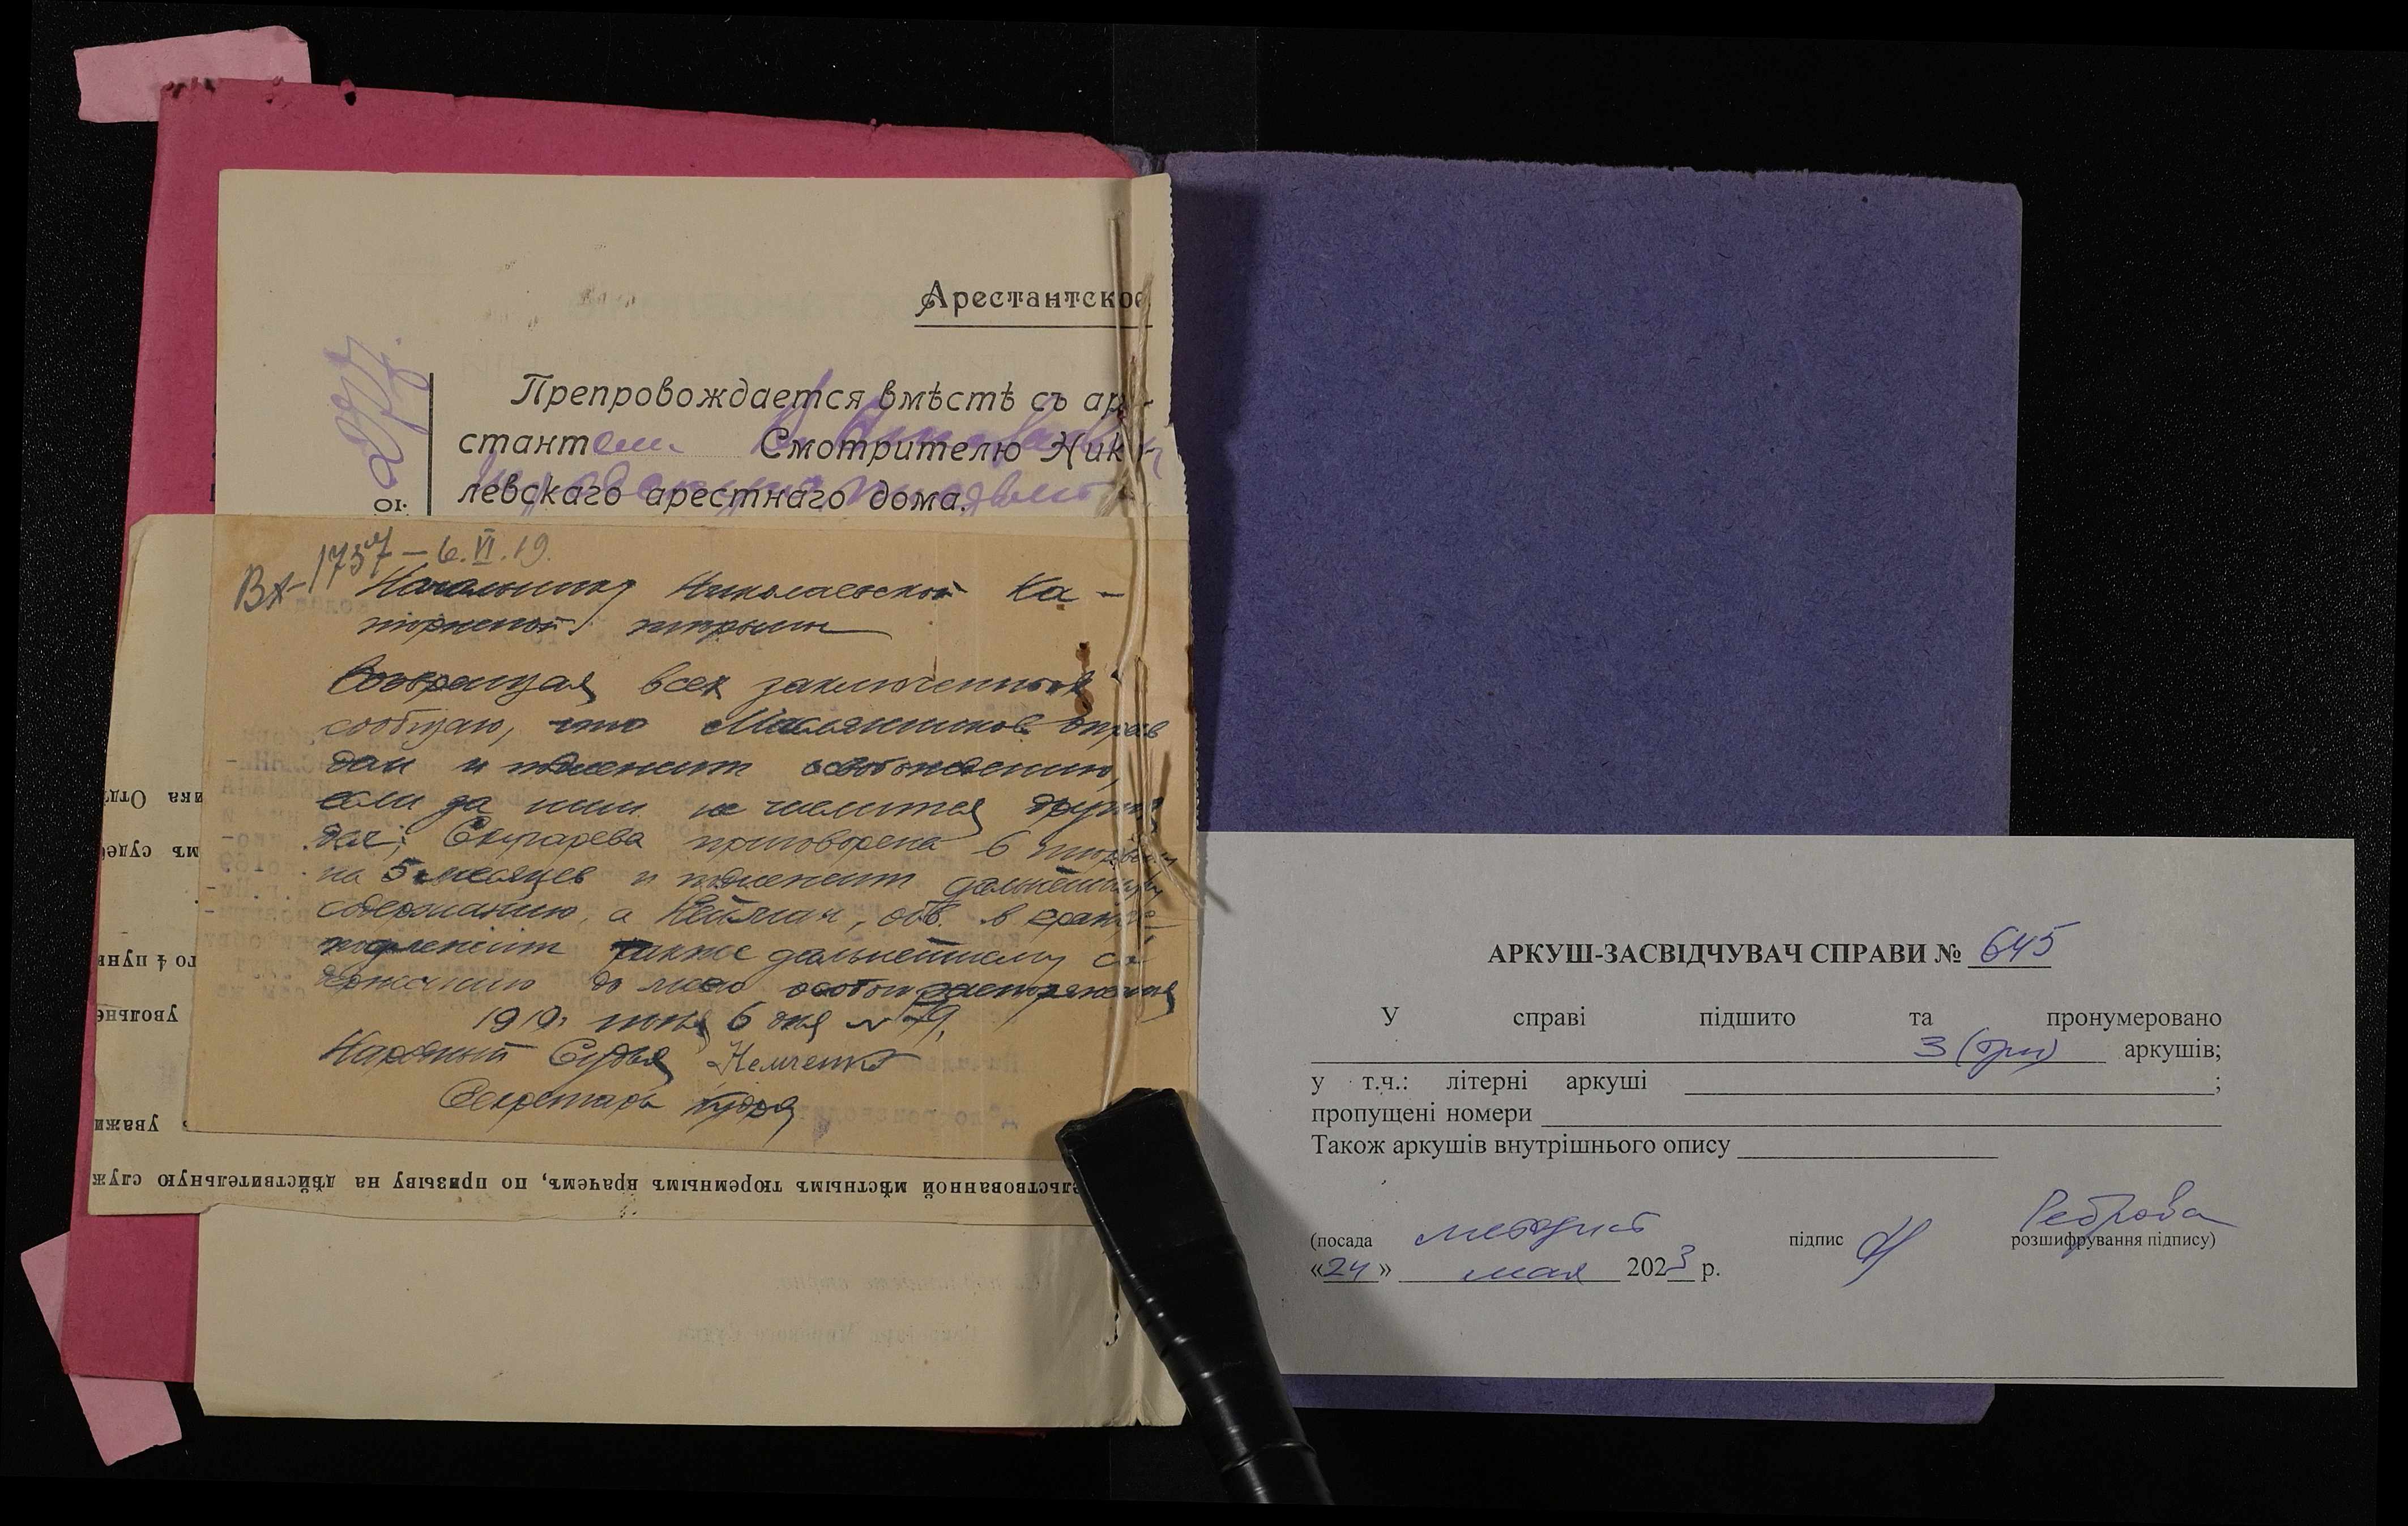 Арестантское
Препровождается вмѣстѣ съ аре-
стантом Смотрителю Нико-
левскаго арестнаго дома.
Вх 1737 — 6.VI.19.
Начальнику Николаевской Ка-
торжной тюрьмы
Возвращая всех заключенных
сообщаю, что Масляников оправ
дан и подлежит освобождению,
если за ним не числится других
дел; Скнарева приговорена к тюрьме
на 5 месяцев и подлежит дальнейшему
содержанию, а Нейман, обв. в краже
подлежит также дальнейшему со
держанию до моего особого распоряжения
1919 июня 6 дня № 79.
Народный Судья Немченко
Секретарь
ика Отд
мъ суде
го 4 пунк
увольне
уважи
льствованной мѣстнымъ тюремнымъ врачемъ, по призыву на дѣйствительную служ
АРКУШ-ЗАСВІДЧУВАЧ СПРАВИ № 645
У справі підшито та пронумеровано
3 (три) аркушів;
у т.ч.: літерні аркуші ;
пропущені номери
Також аркушів внутрішнього опису
(посада методист підпис Реброва розшифрування підпису)
«24» мая 2023 р.